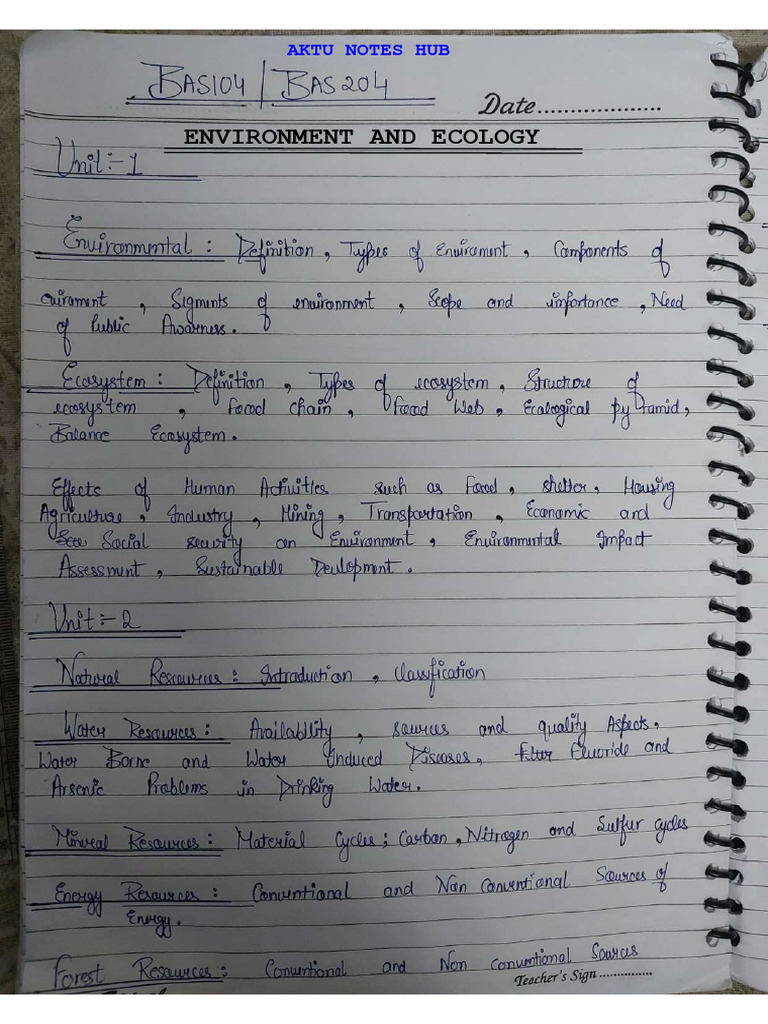 AKTU NOTES HUB
BAS104 / BAS204
Date...................
ENVIRONMENT AND ECOLOGY
Unit:-1
Environmental : Definition, Types of Envirament, Components of
envirament, Sigments of environment, Scope and importance, Need
of Public Awarness.
Ecosystem : Definition, Types of ecosystem, Structure of
ecosystem, Food Chain, Food Web, Ecological pyramid,
Balance Ecosystem.
Effects of Human Activities such as Food, shelter, Housing
Agriculture, Industry, Mining, Transportation, Economic and
Social security on Environment, Environmental Impact
Assessment, Sustainable Devlopment.
Unit:-2
Natural Resources : Introduction, Classification
Water Resources : Availability, sources and quality Aspects.
Water Borne and Water Induced Diseases, Fluoride and
Arsenic Problems in Drinking Water.
Mineral Resources : Material Cycles; Carbon, Nitrogen and Sulfur cycles
Energy Resources : Conventional and Non Conventional Sources of
Energy.
Forest Resources : Conventional and Non Conventional Sources
Teacher's Sign...............